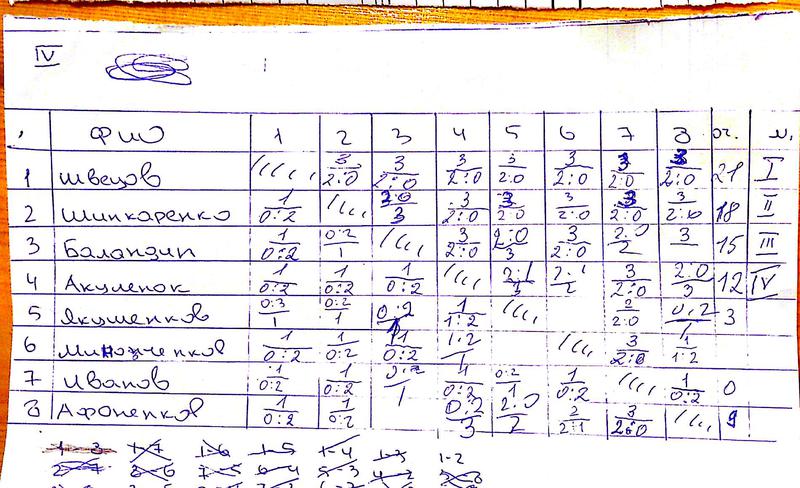 IV
ФИО 1 2 3 4 5 6 7 8 оч. м.
1 Швецов 3 2:0 3 2:0 3 2:0 3 2:0 3 2:0 3 2:0 3 2:0 21 I
2 Шипкаренко 1 0:2 2:0 3 3 2:0 3 2:0 3 2:0 3 2:0 3 2:0 18 II
3 Баландин 1 0:2 0:2 1 3 2:0 2:0 3 3 2:0 2:0 2 3 15 III
4 Акуленок 1 0:2 1 0:2 1 0:2 2:1 3 2:1 2 3 2:0 2:0 3 12 IV
5 Якушенков 0:3 1 0:2 1 0:2 1 1:2 2 2:0 0:2 3
6 1 0:2 1 0:2 1 0:2 1:2 1 3 2:0 1 1:2
7 Иванов 1 0:2 1 0:2 0:2 1 1 0:2 0:2 1 1 0:2 1 0:2 0
8 Афоненков 1 0:2 1 0:2 0:2 3 2:0 2 2 2:1 3 2:0 9
1-3 1-7 1-6 1-5 1-4 1-3 1-2
2-7 8-6 6-4 5-3 4-2